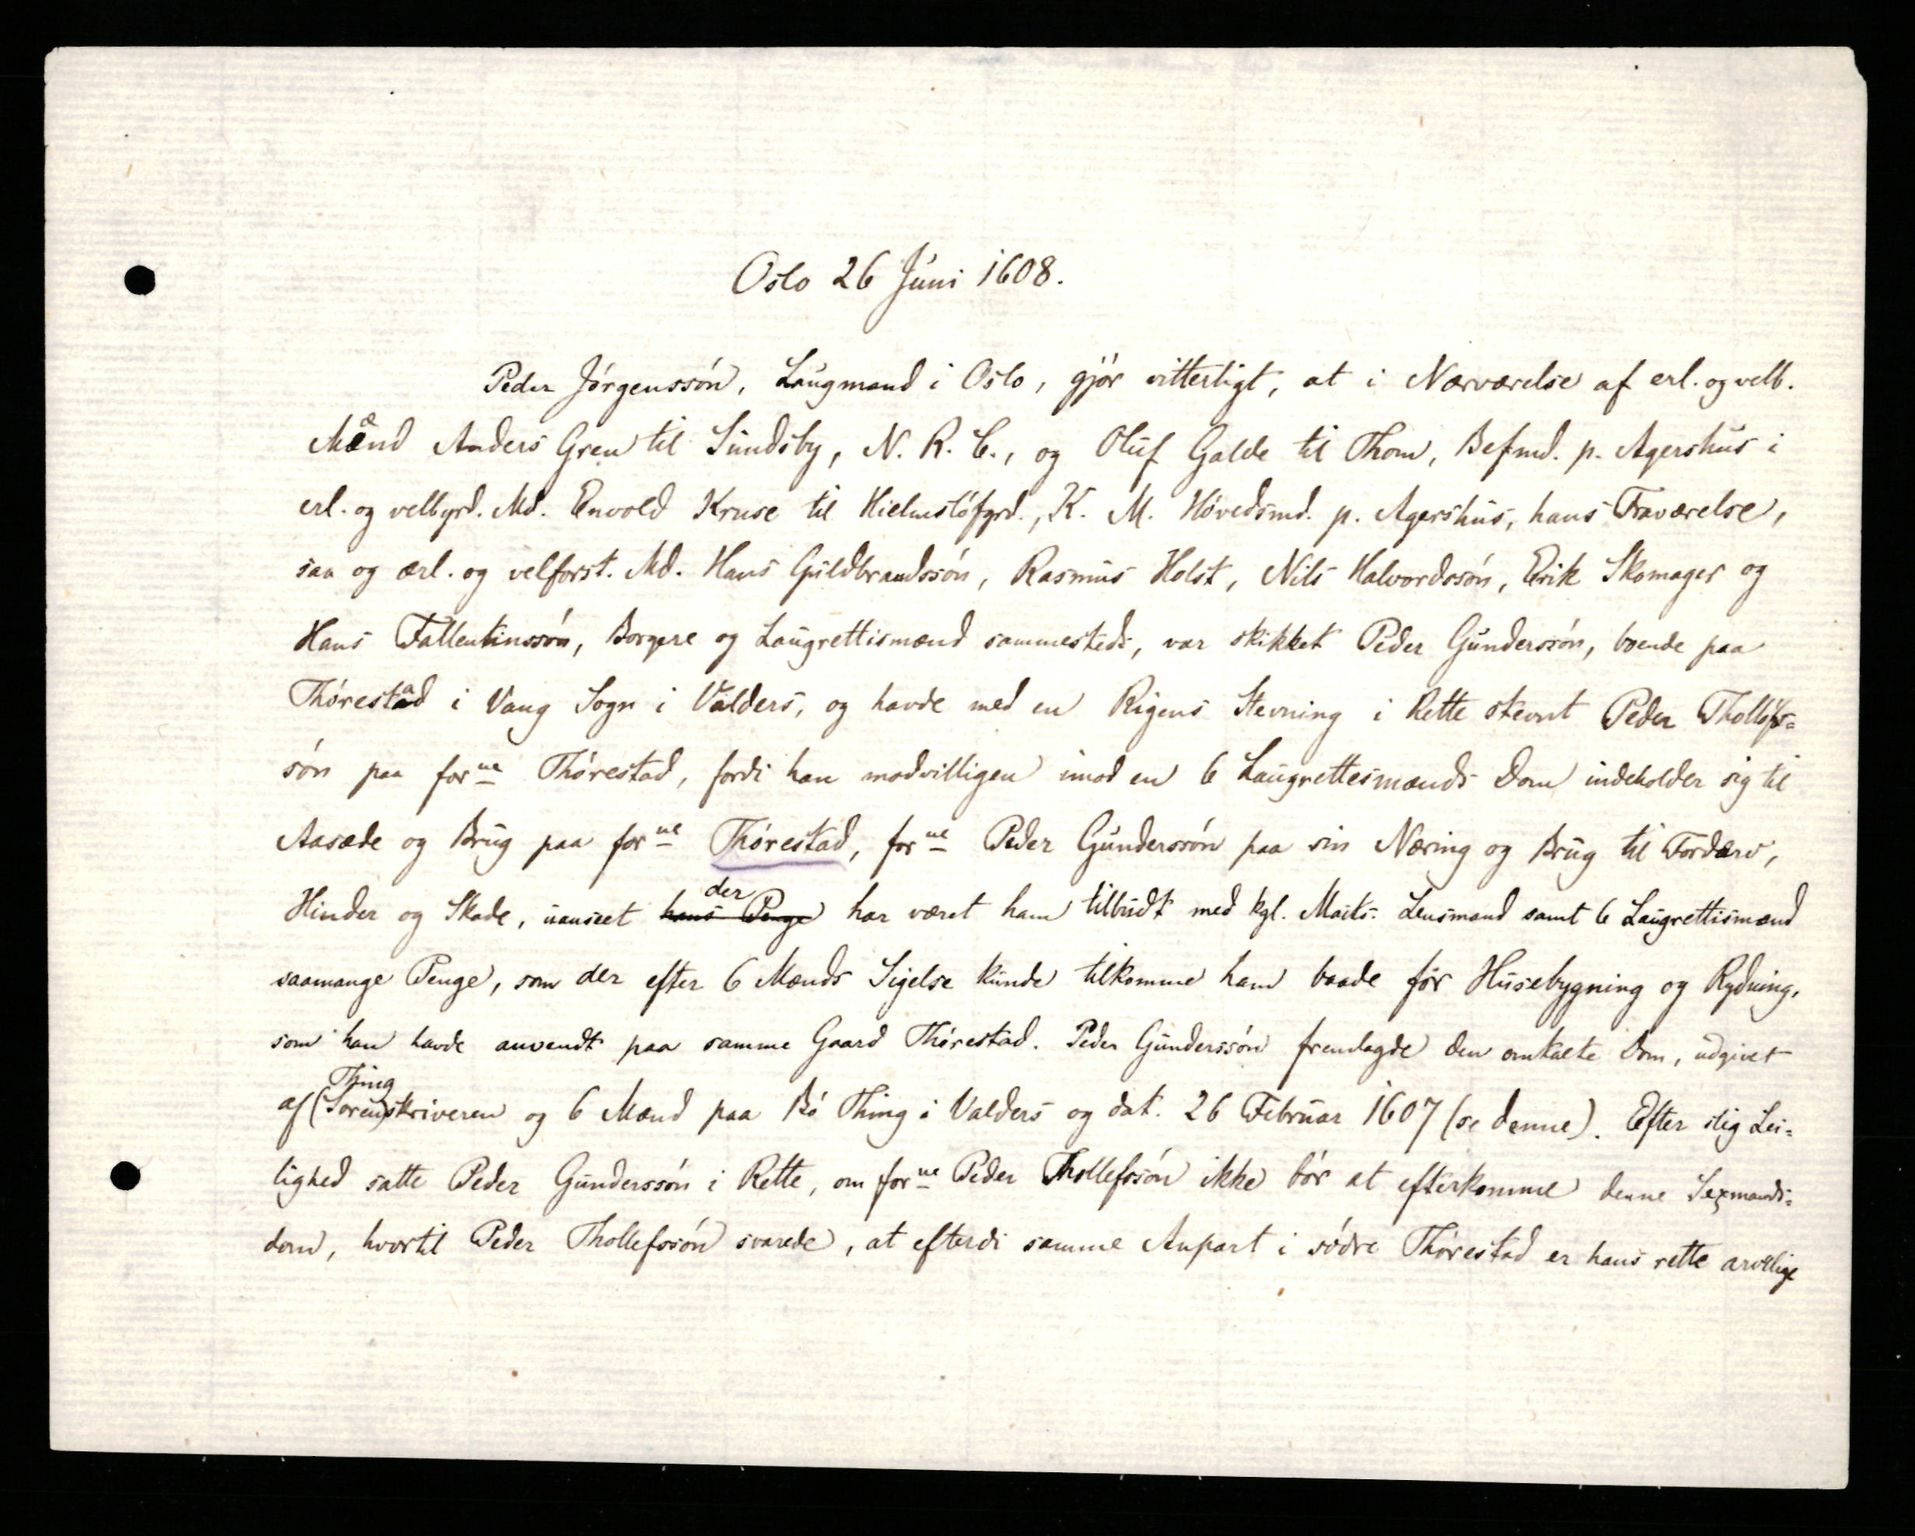 Oslo 26 Juni 1608.
Peder Jörgenssön, Laugmand i Oslo, gjör vitterligt, at i Nærværelse af erl. og velb.
Mænd Anders Gren til Sundsby, N. R. C., og Oluf Galde til Thom, Befmd. p. Agershus i
erl. og velbyrd. Md. Envold Kruse til Hielmslöfgrd., K. M. Hövedsmd. p. Agershus, hans Fraværelse,
saa og ærl. og velforst. Md. Hans Guldbrandssön, Rasmus Holst, Nils Halvordssön, Erik Skomager og
Hans Fallentinssön, Borgere og Laugrettismænd sammesteds, var skikket Peder Gunderssön, boende paa
Thörestad i Vang Sogn i Valders, og havde med en Rigens Stevning i Rette stevnt Peder Thollefs=
sön paa forne Thörestad, fordi han modvilligen imod en 6 Laugrettesmænds Dom indeholder sig til
Aasæde og Brug paa forne Thörestad, forne Peder Gunderssön paa sin Næring og Brug til Fordærv,
Hinder og Skade, uanseet ~~hans Penge~~ der har været ham tilbudt med kgl. Maits. Lensmand samt 6 Laugrettismænd
saamange Penge, som der efter 6 Mænds Sigelse kunde tilkomme ham baade för Husebygning og Rydning,
som han havde anvendt paa samme Gaard Thörestad. Peder Gunderssön fremlagde den omtalte Dom, udgivet
af (Sorenskriveren Thing og 6 Mænd paa Bö Thing i Valders og dat. 26 Februar 1607 (se denne). Efter slig Lei=
lighed satte Peder Gunderssön i Rette, om forne Peder Thollefssön ikke bör at efterkomme denne Sexmands=
dom, hvortil Peder Thollefssön svarede, at efterdi samme Anpart i södre Thörestad er hans rette arvelige